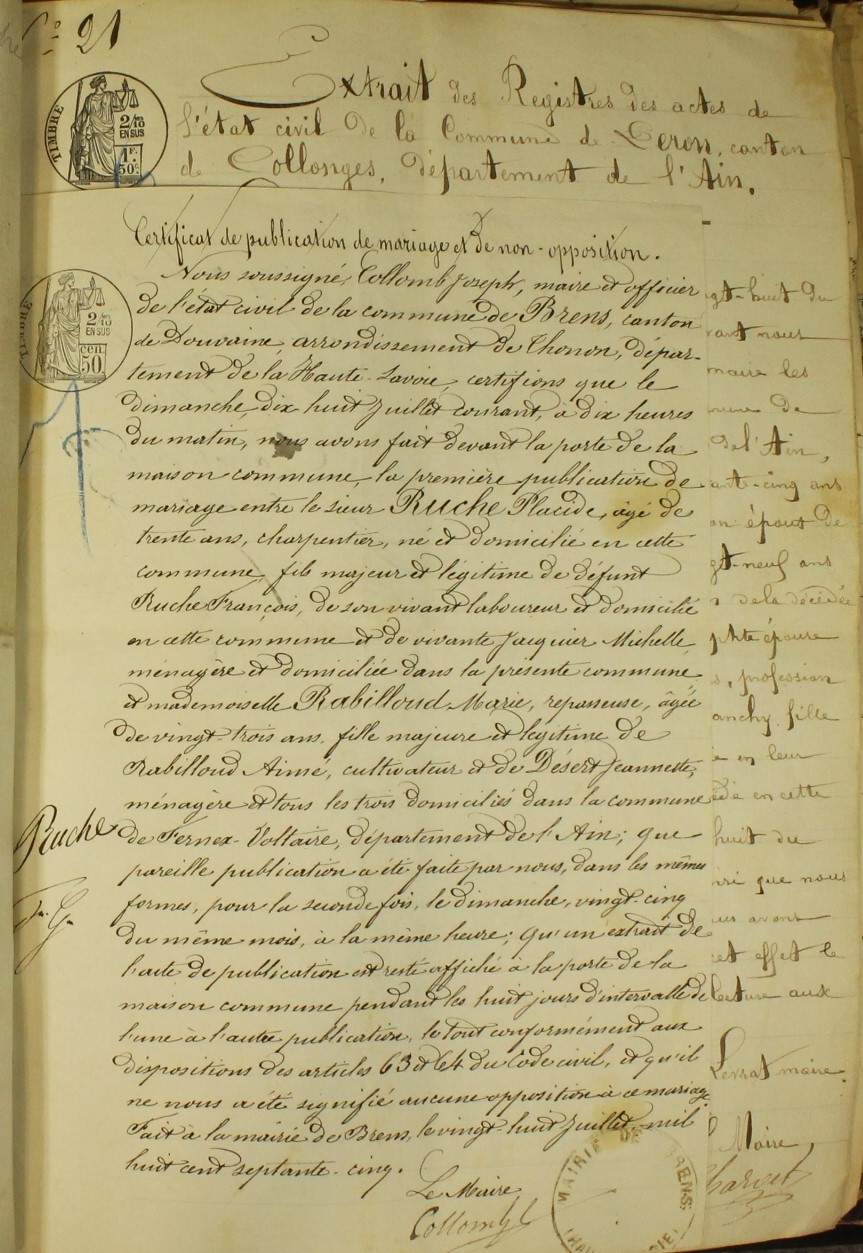 N° 21
TIMBRE
2/10
EN SUS
1F.
50c
Extrait des Registres des actes de
l'état civil de la Commune de Péron, canton
de Collonges, département de l'Ain.
Certificat de publication de mariage et de non-opposition.
2/10
EN SUS
CEN.
50.
Nous soussigné, Collomb Joseph, maire et officier
de l'état civil de la commune de Brens, canton
de Douvaine, arrondissement de Thonon, dépar-
tement de la Haute-Savoie, certifions que le
dimanche, dix huit Juillet courant, à dix heures
du matin, nous avons fait devant la porte de la
maison commune, la première publication de
mariage entre le sieur Ruche Placide, âgé de
trente ans, charpentier, né et domicilié en cette
commune, fils majeur et légitime de défunt
Ruche François, de son vivant laboureur et domicilié
en cette commune et de vivante Jacquier Michelle,
ménagère et domiciliée dans la présente commune
et mademoiselle Rabilloud Marie, repasseuse, âgée
de vingt-trois ans, fille majeure et légitime de
Rabilloud Aimé, cultivateur et de Désert Jeannette,
ménagère et tous les trois domiciliés dans la commune
de Fernex-Voltaire, département de l'Ain; que
pareille publication a été faite par nous, dans les mêmes
formes, pour la seconde fois, le dimanche, vingt-cinq
du même mois, à la même heure; qu'un extrait de
l'acte de publication est resté affiché à la porte de la
maison commune pendant les huit jours d'intervalle de
l'une à l'autre publication, le tout conformément aux
dispositions des articles 63 et 64 du Code civil, et qu'il
ne nous a été signifié aucune opposition à ce mariage.
Fait à la mairie de Brens, le vingt-huit Juillet, mil
huit cent septante-cinq.
Le Maire
Collomb J
MAIRIE DE BRENS
Ruche
gt-huit du
vant nous
maire les
mune de
de l'Ain,
ante-cinq ans
on époux de
gt-neuf ans
de la décédée
phte épouse
profession
anchy, fille
en leur
édé en cette
huit du
que nous
avons
cet effet le
lecture aux
maire.
Maire